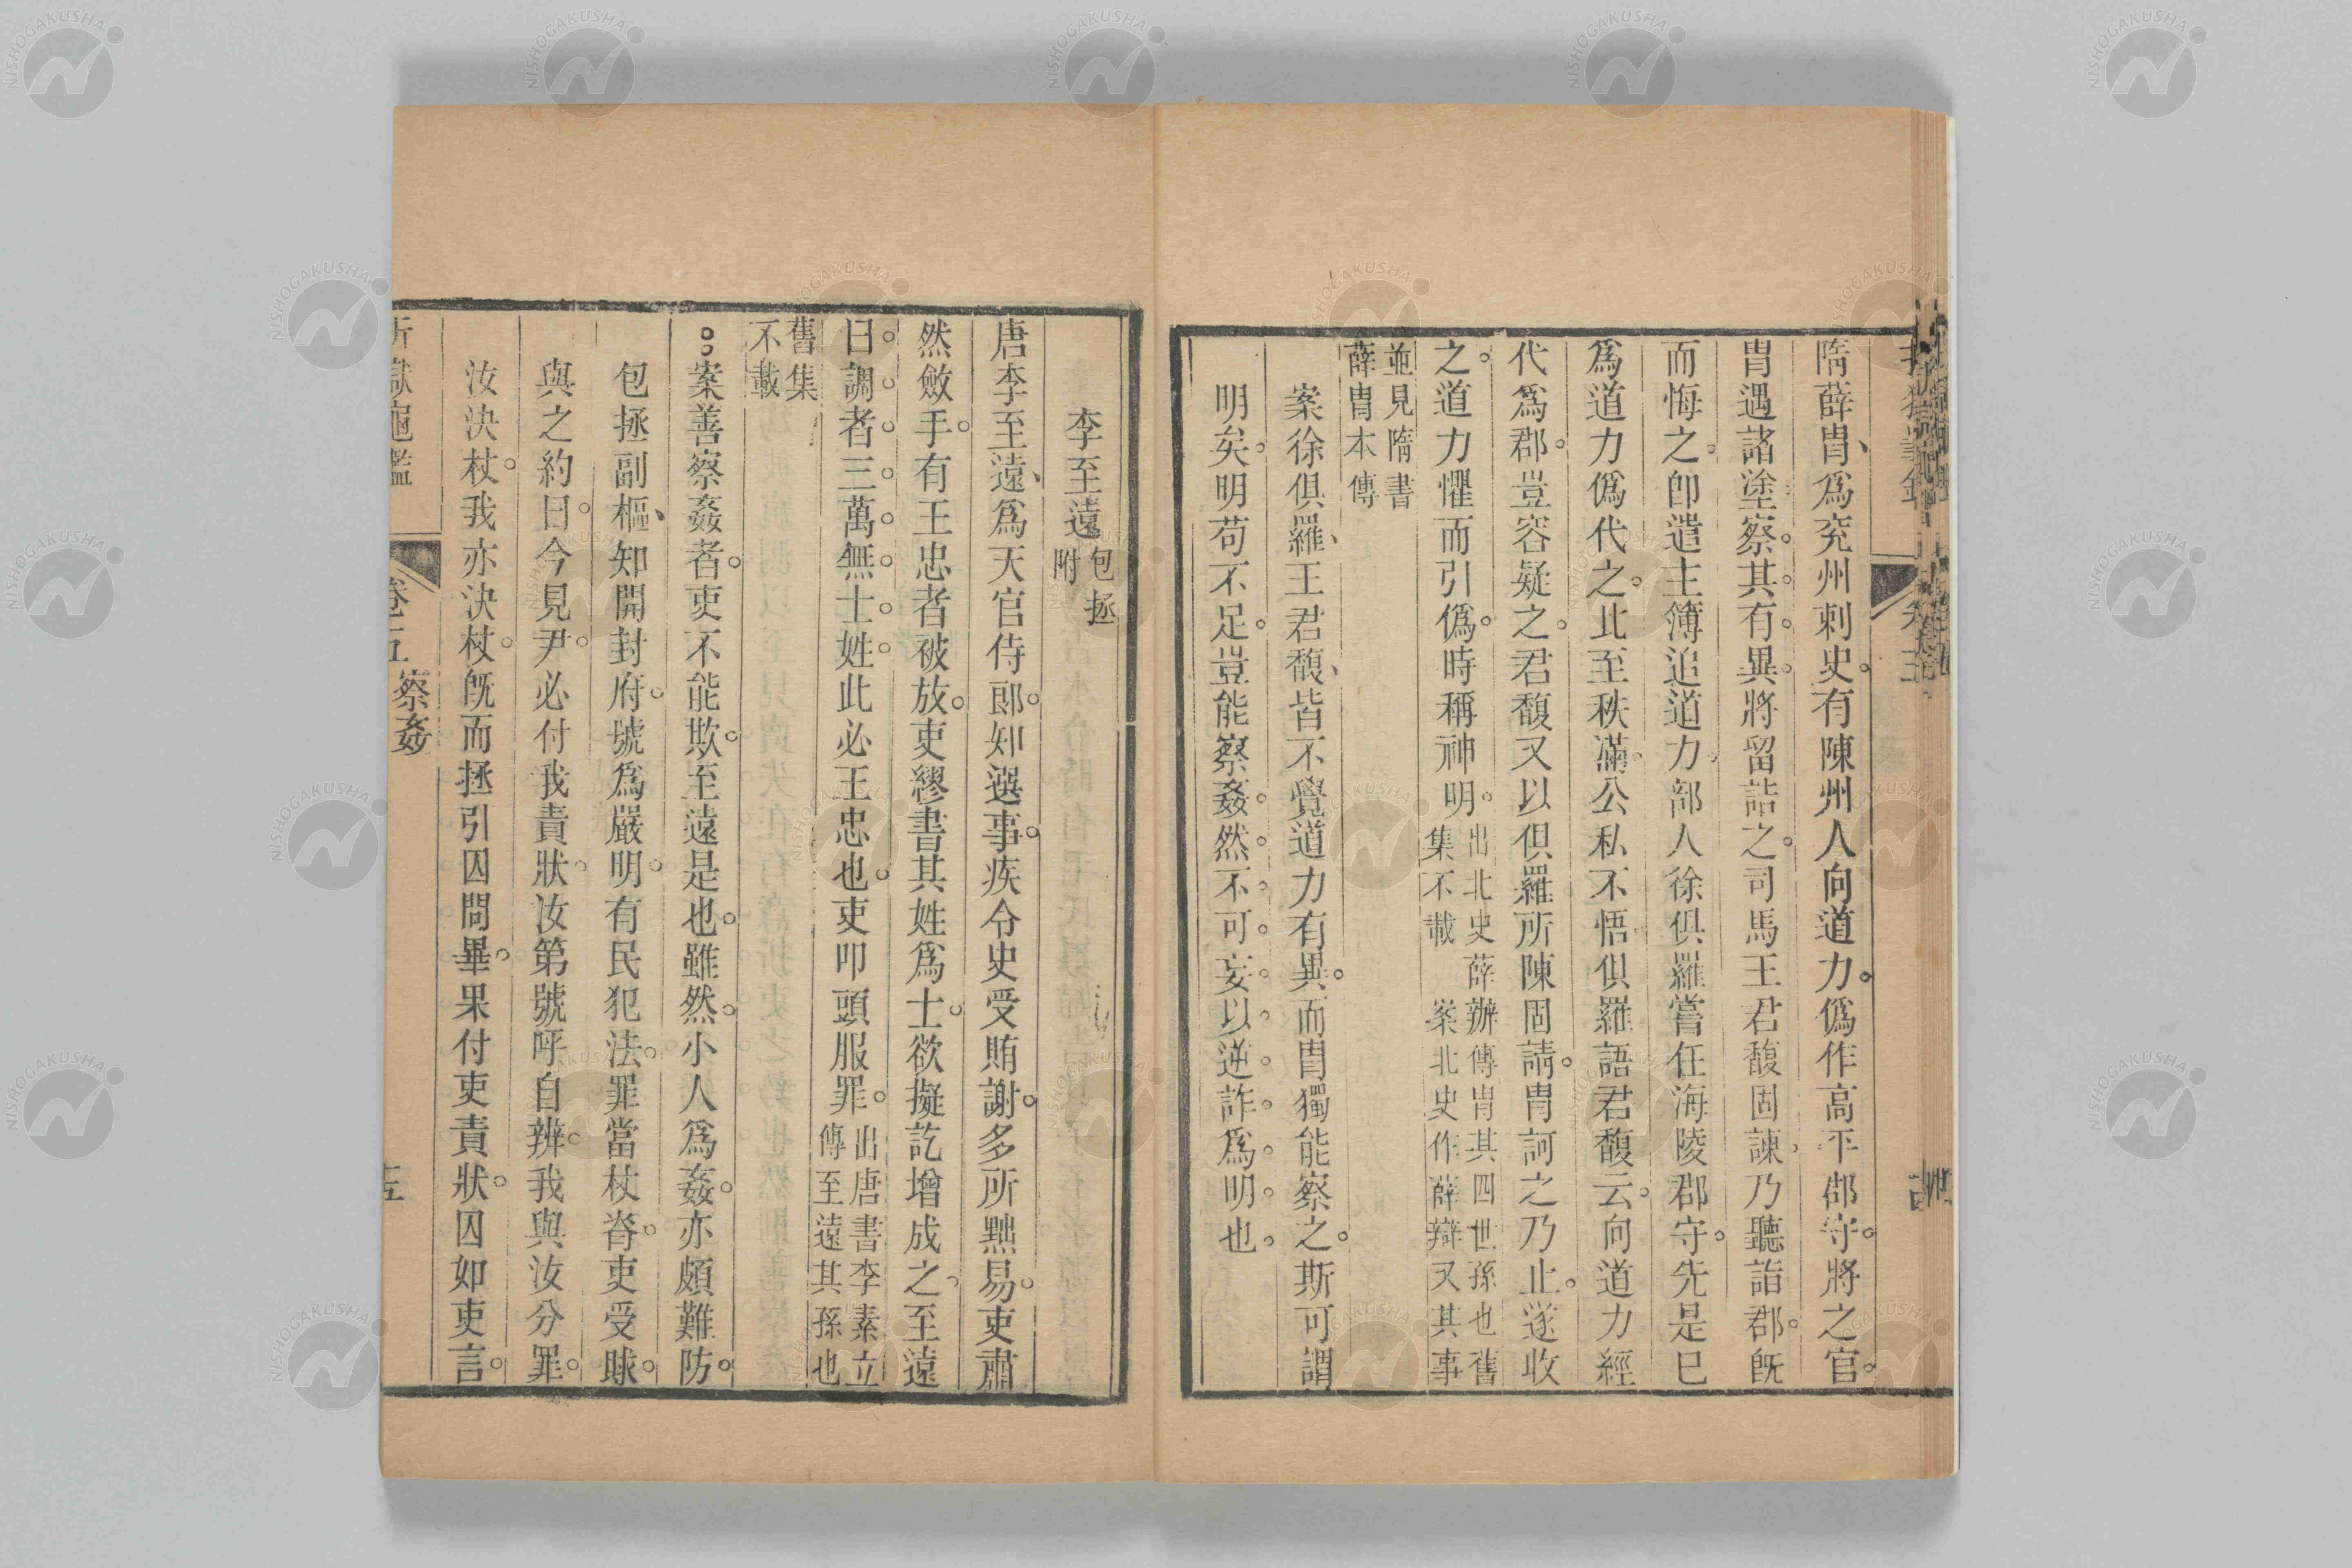 隋薛胄爲兖州刺史。有陳州人向道力。僞作高平郡守。將之官。
胄遇諸塗。察其有異。將留詰之。司馬王君馥固諫。乃聽詣郡。旣
而悔之。卽遣主簿追道力。部人徐俱羅嘗任海陵郡守。先是已
爲道力僞代之。此至秩滿。公私不悟。俱羅語君馥云。向道力經
代爲郡。豈容疑之。君馥又以俱羅所陳固請。胄訶之乃止。遂收
之。道力懼而引僞。時稱神明。出北史薛辦傳胄其四世孫也舊
集不載　案北史作薛辯又其事
並見隋書
薛胄本傳
案徐俱羅、王君馥、皆不覺道力有異。而胄獨能察之。斯可謂
明矣。明苟不足。豈能察姦。然不可妄以逆詐爲明也。
李至遠包拯
附
唐李至遠、爲天官侍郎。知選事。疾令史受賄謝。多所黜易。吏肅
然斂手。有王忠者被放。吏繆書其姓爲士。欲擬訖增成之。至遠
曰。調者三萬。無士姓。此必王忠也。吏叩頭服罪。出唐書李素立
傳至遠其孫也
舊集
不載
案善察姦者。吏不能欺。至遠是也。雖然。小人爲姦。亦頗難防。
包拯副樞、知開封府。號爲嚴明。有民犯法。罪當杖脊。吏受賕。
與之約曰。今見尹。必付我責狀。汝第號呼自辨。我與汝分罪。
汝決杖。我亦決杖。旣而拯引囚問畢。果付吏責狀。囚如吏言。
折獄龜鑑
卷五
察姦
十五
NISHOGAKUSHA